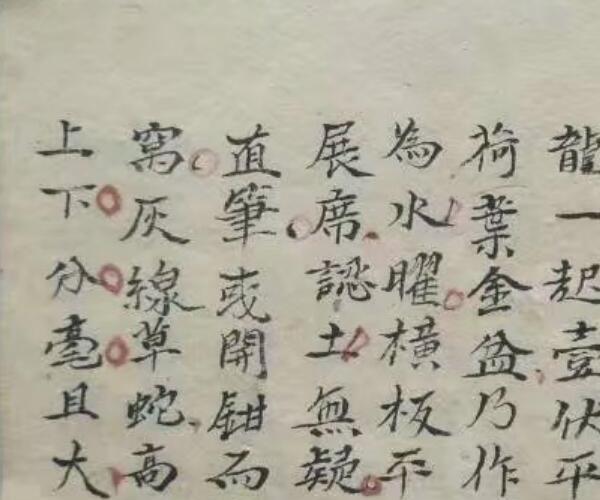 龍一起壹伏平
荷葉金盆乃作
為水曜橫板平
展席認土無疑
直筆或開鉗而
窩灰線草蛇高
上下分毫且大